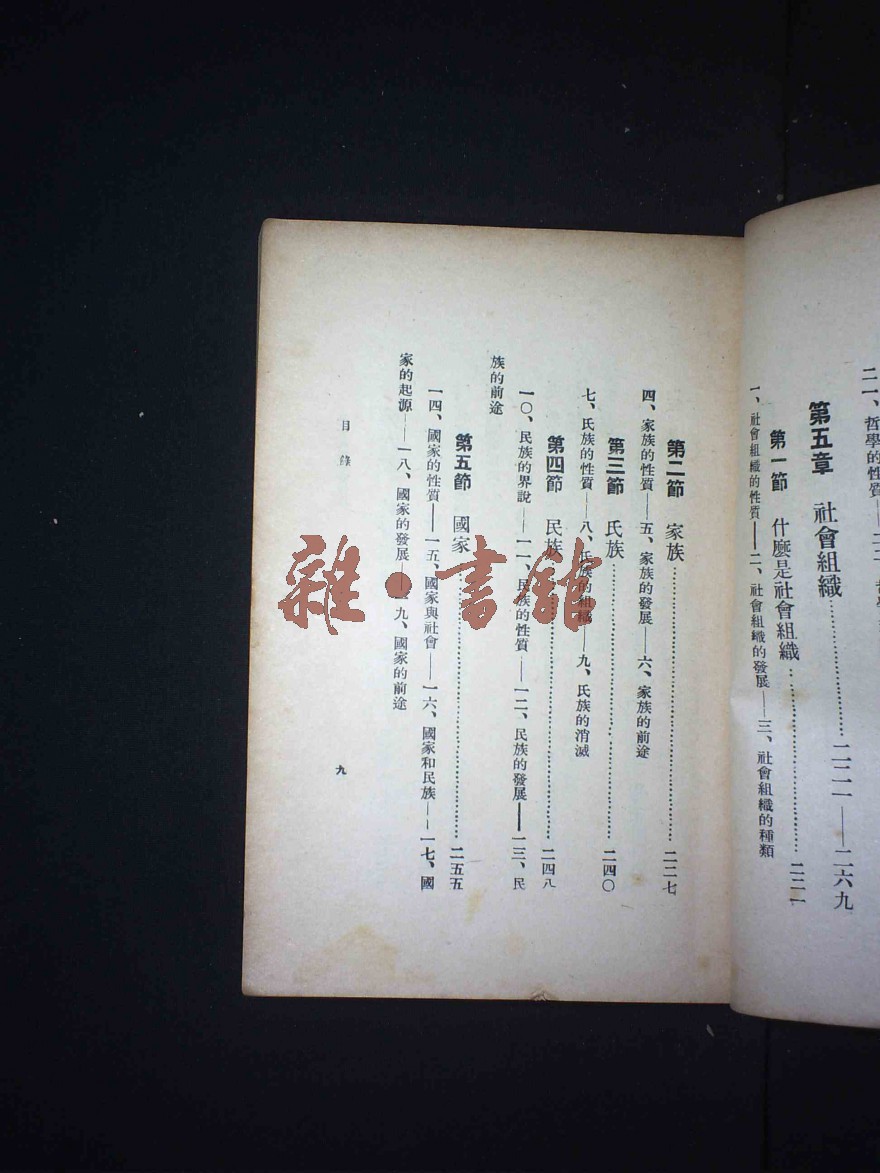 二一、哲學的性質——二二
第五章　社會組織…………二二一——二六九
第一節　什麼是社會組織…………二二一
一、社會組織的性質——二、社會組織的發展——三、社會組織的種類
第二節　家族…………二二七
四、家族的性質——五、家族的發展——六、家族的前途
第三節　氏族…………二四〇
七、氏族的性質——八、氏族的組織——九、氏族的消滅
第四節　民族…………二四八
一〇、民族的界說——一一、民族的性質——一二、民族的發展——一三、民
族的前途
第五節　國家…………二五五
一四、國家的性質——一五、國家與社會——一六、國家和民族——一七、國
家的起源——一八、國家的發展——一九、國家的前途
目錄
九
雜·書館